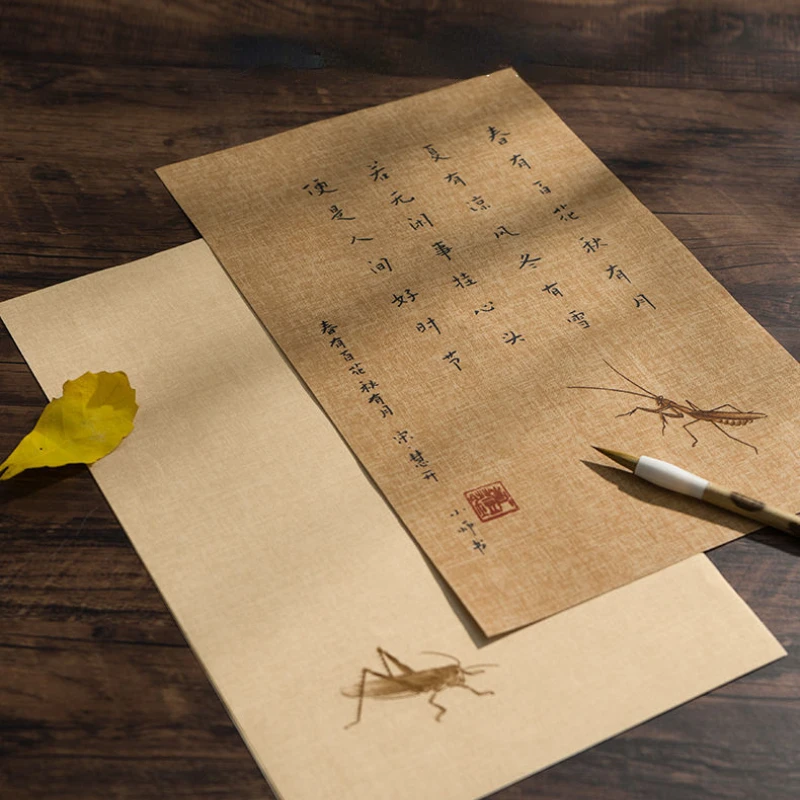 春有百花秋有月
夏有凉风冬有雪
若无闲事挂心头
便是人间好时节
春有百花秋有月 宋·慧开
小师书